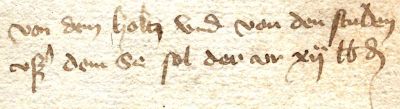 von dem holtz vnd von den studen
vsß dem se sol der vr xij lb d